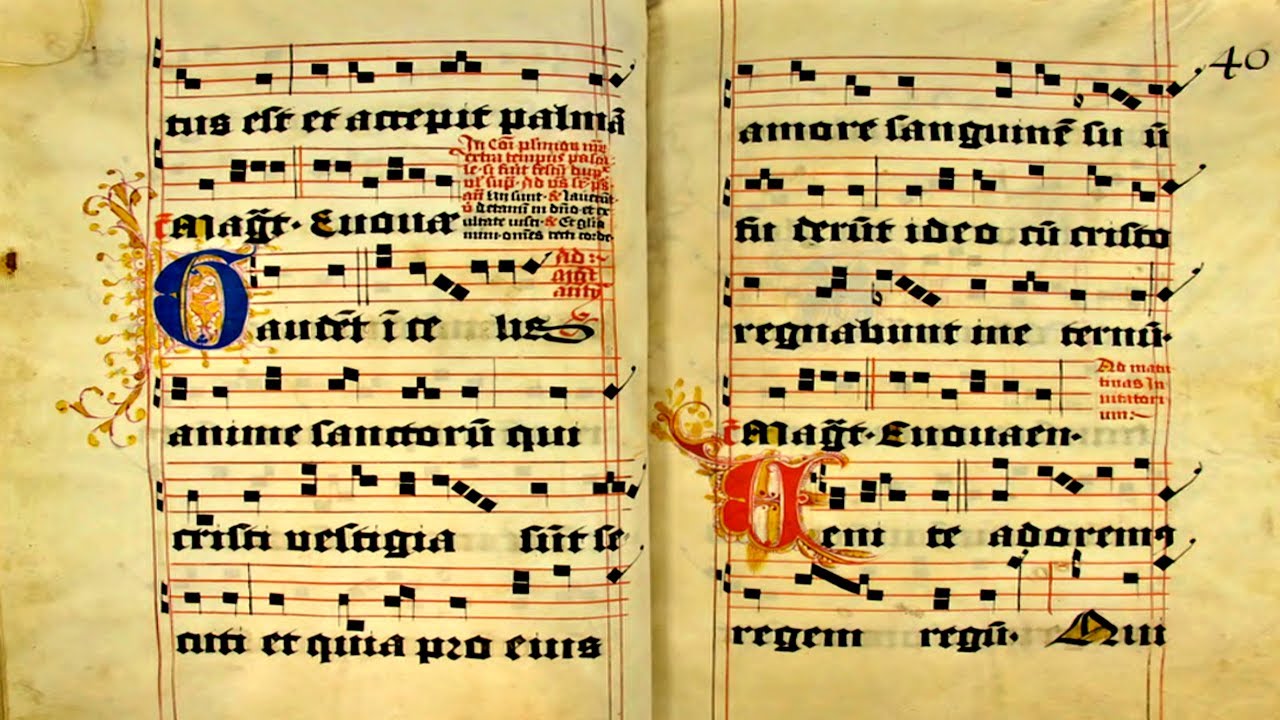 tus est et accepit palmā
Magt̄. Euouae
Gaudēt ī ce lis
anime sanctorū qui
cristi vestigia sūt se
cuti et quia pro eius
40
amore sanguinē su ū
fu derūt ideo cū cristo
regnabunt ine ternū.
Ad matu
tinas In
uitatori
um:
Magt̄. Euouaen.
Ueni te adoremꝰ
regem regū. Qui